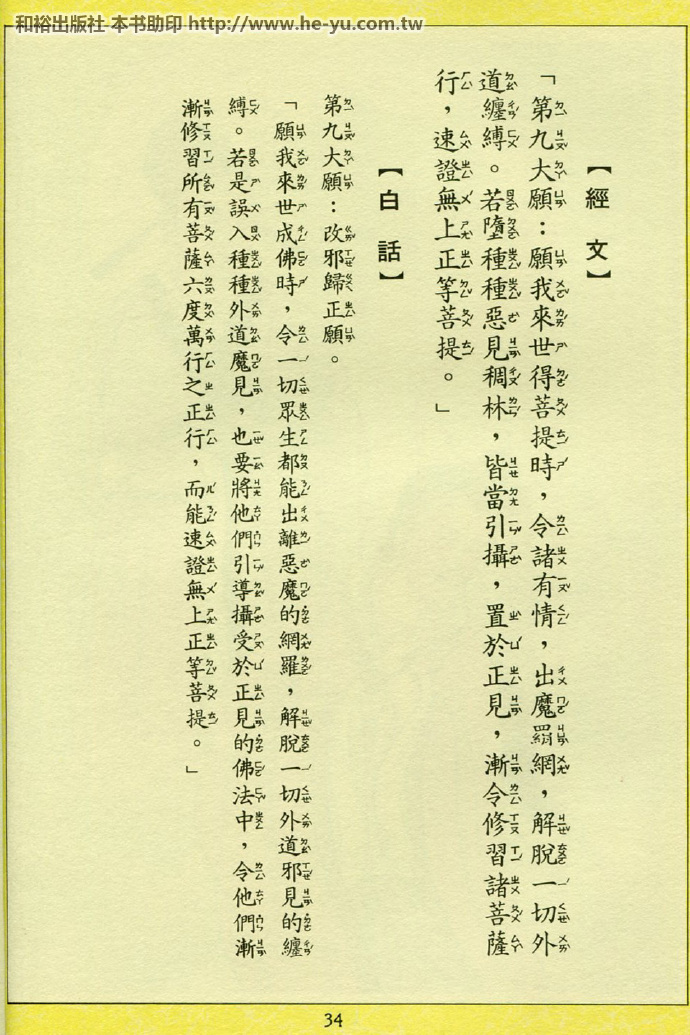 和裕出版社 本书助印 http://www.he-yu.com.tw
【經文】
「第九大願：願我來世得菩提時，令諸有情，出魔罥網，解脫一切外
道纏縛。若墮種種惡見稠林，皆當引攝，置於正見，漸令修習諸菩薩
行，速證無上正等菩提。」
【白話】
第九大願：改邪歸正願。
「願我來世成佛時，令一切眾生都能出離惡魔的網羅，解脫一切外道邪見的纏
縛。若是誤入種種外道魔見，也要將他們引導攝受於正見的佛法中，令他們漸
漸修習所有菩薩六度萬行之正行，而能速證無上正等菩提。」
34